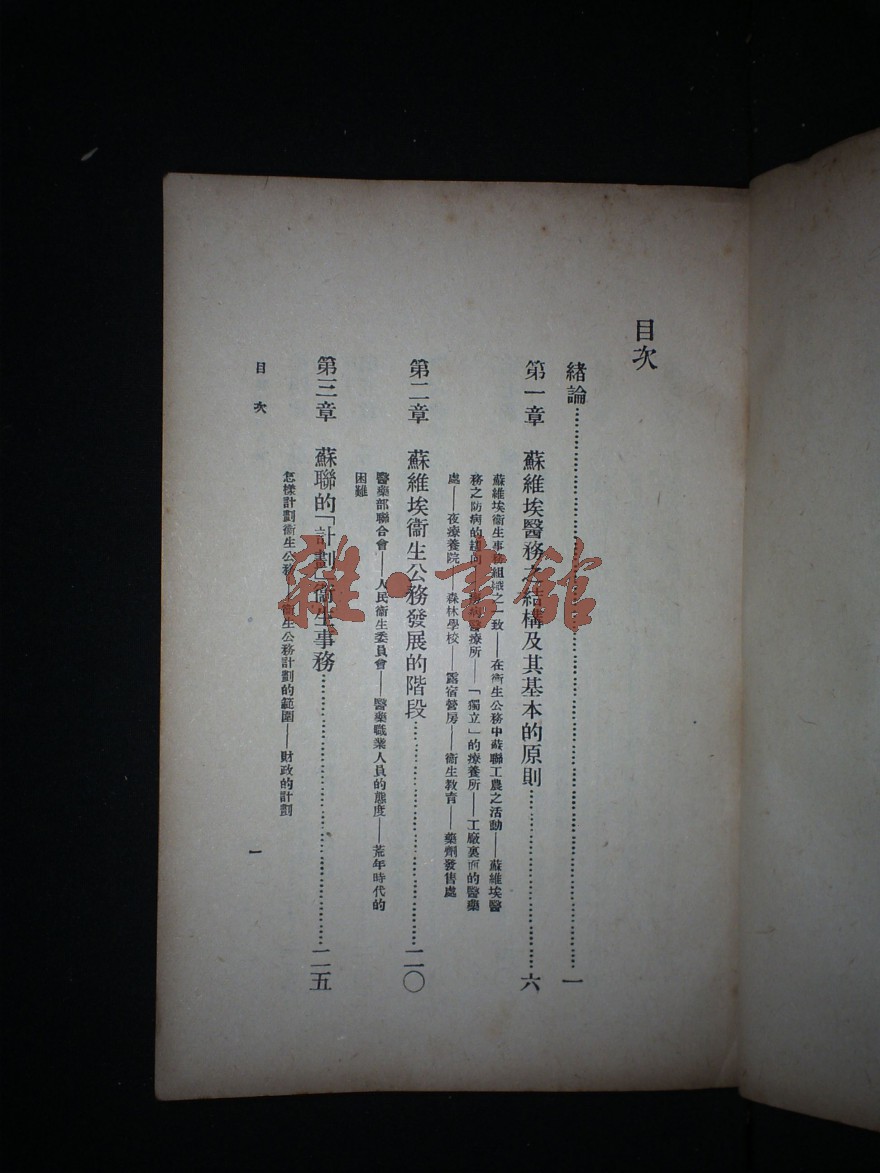 目次
緒論……一
第一章 蘇維埃醫務之結構及其基本的原則……六
蘇維埃衞生事務組織之一致——在衞生公務中蘇聯工農之活動——蘇維埃醫
務之防病的趨向——防病醫療所——「獨立」的療養所——工廠裏面的醫藥
處——夜療養院——森林學校——露宿營房——衞生教育——藥劑發售處
第二章 蘇維埃衞生公務發展的階段……二〇
醫藥部聯合會——人民衞生委員會——醫藥職業人員的態度——荒年時代的
困難
第三章 蘇聯的「計劃」衞生事務……二五
怎樣計劃衞生公務——衞生公務計劃的範圍——財政的計劃
目次
一
雜·書館